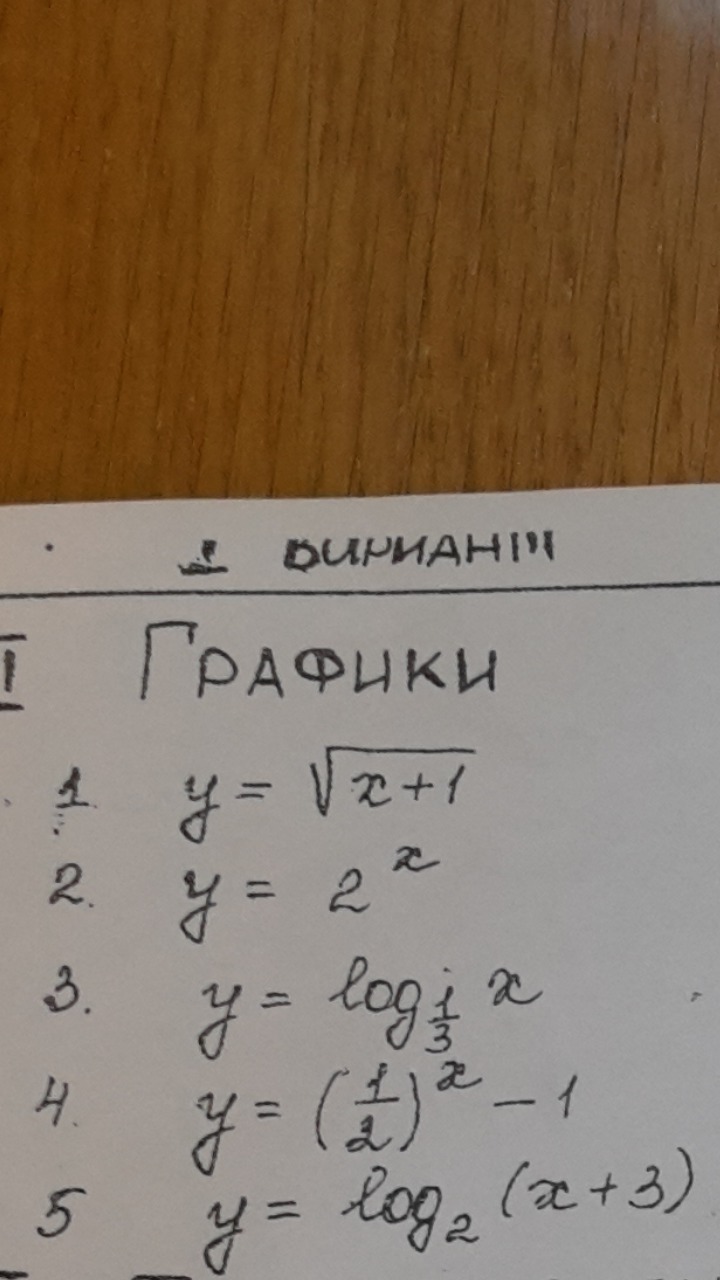 1 ВАРИАНТ
II ГРАФИКИ
1. y = √(x+1)
2. y = 2^x
3. y = log_{1/3} x
4. y = (1/2)^x - 1
5 y = log_2 (x+3)